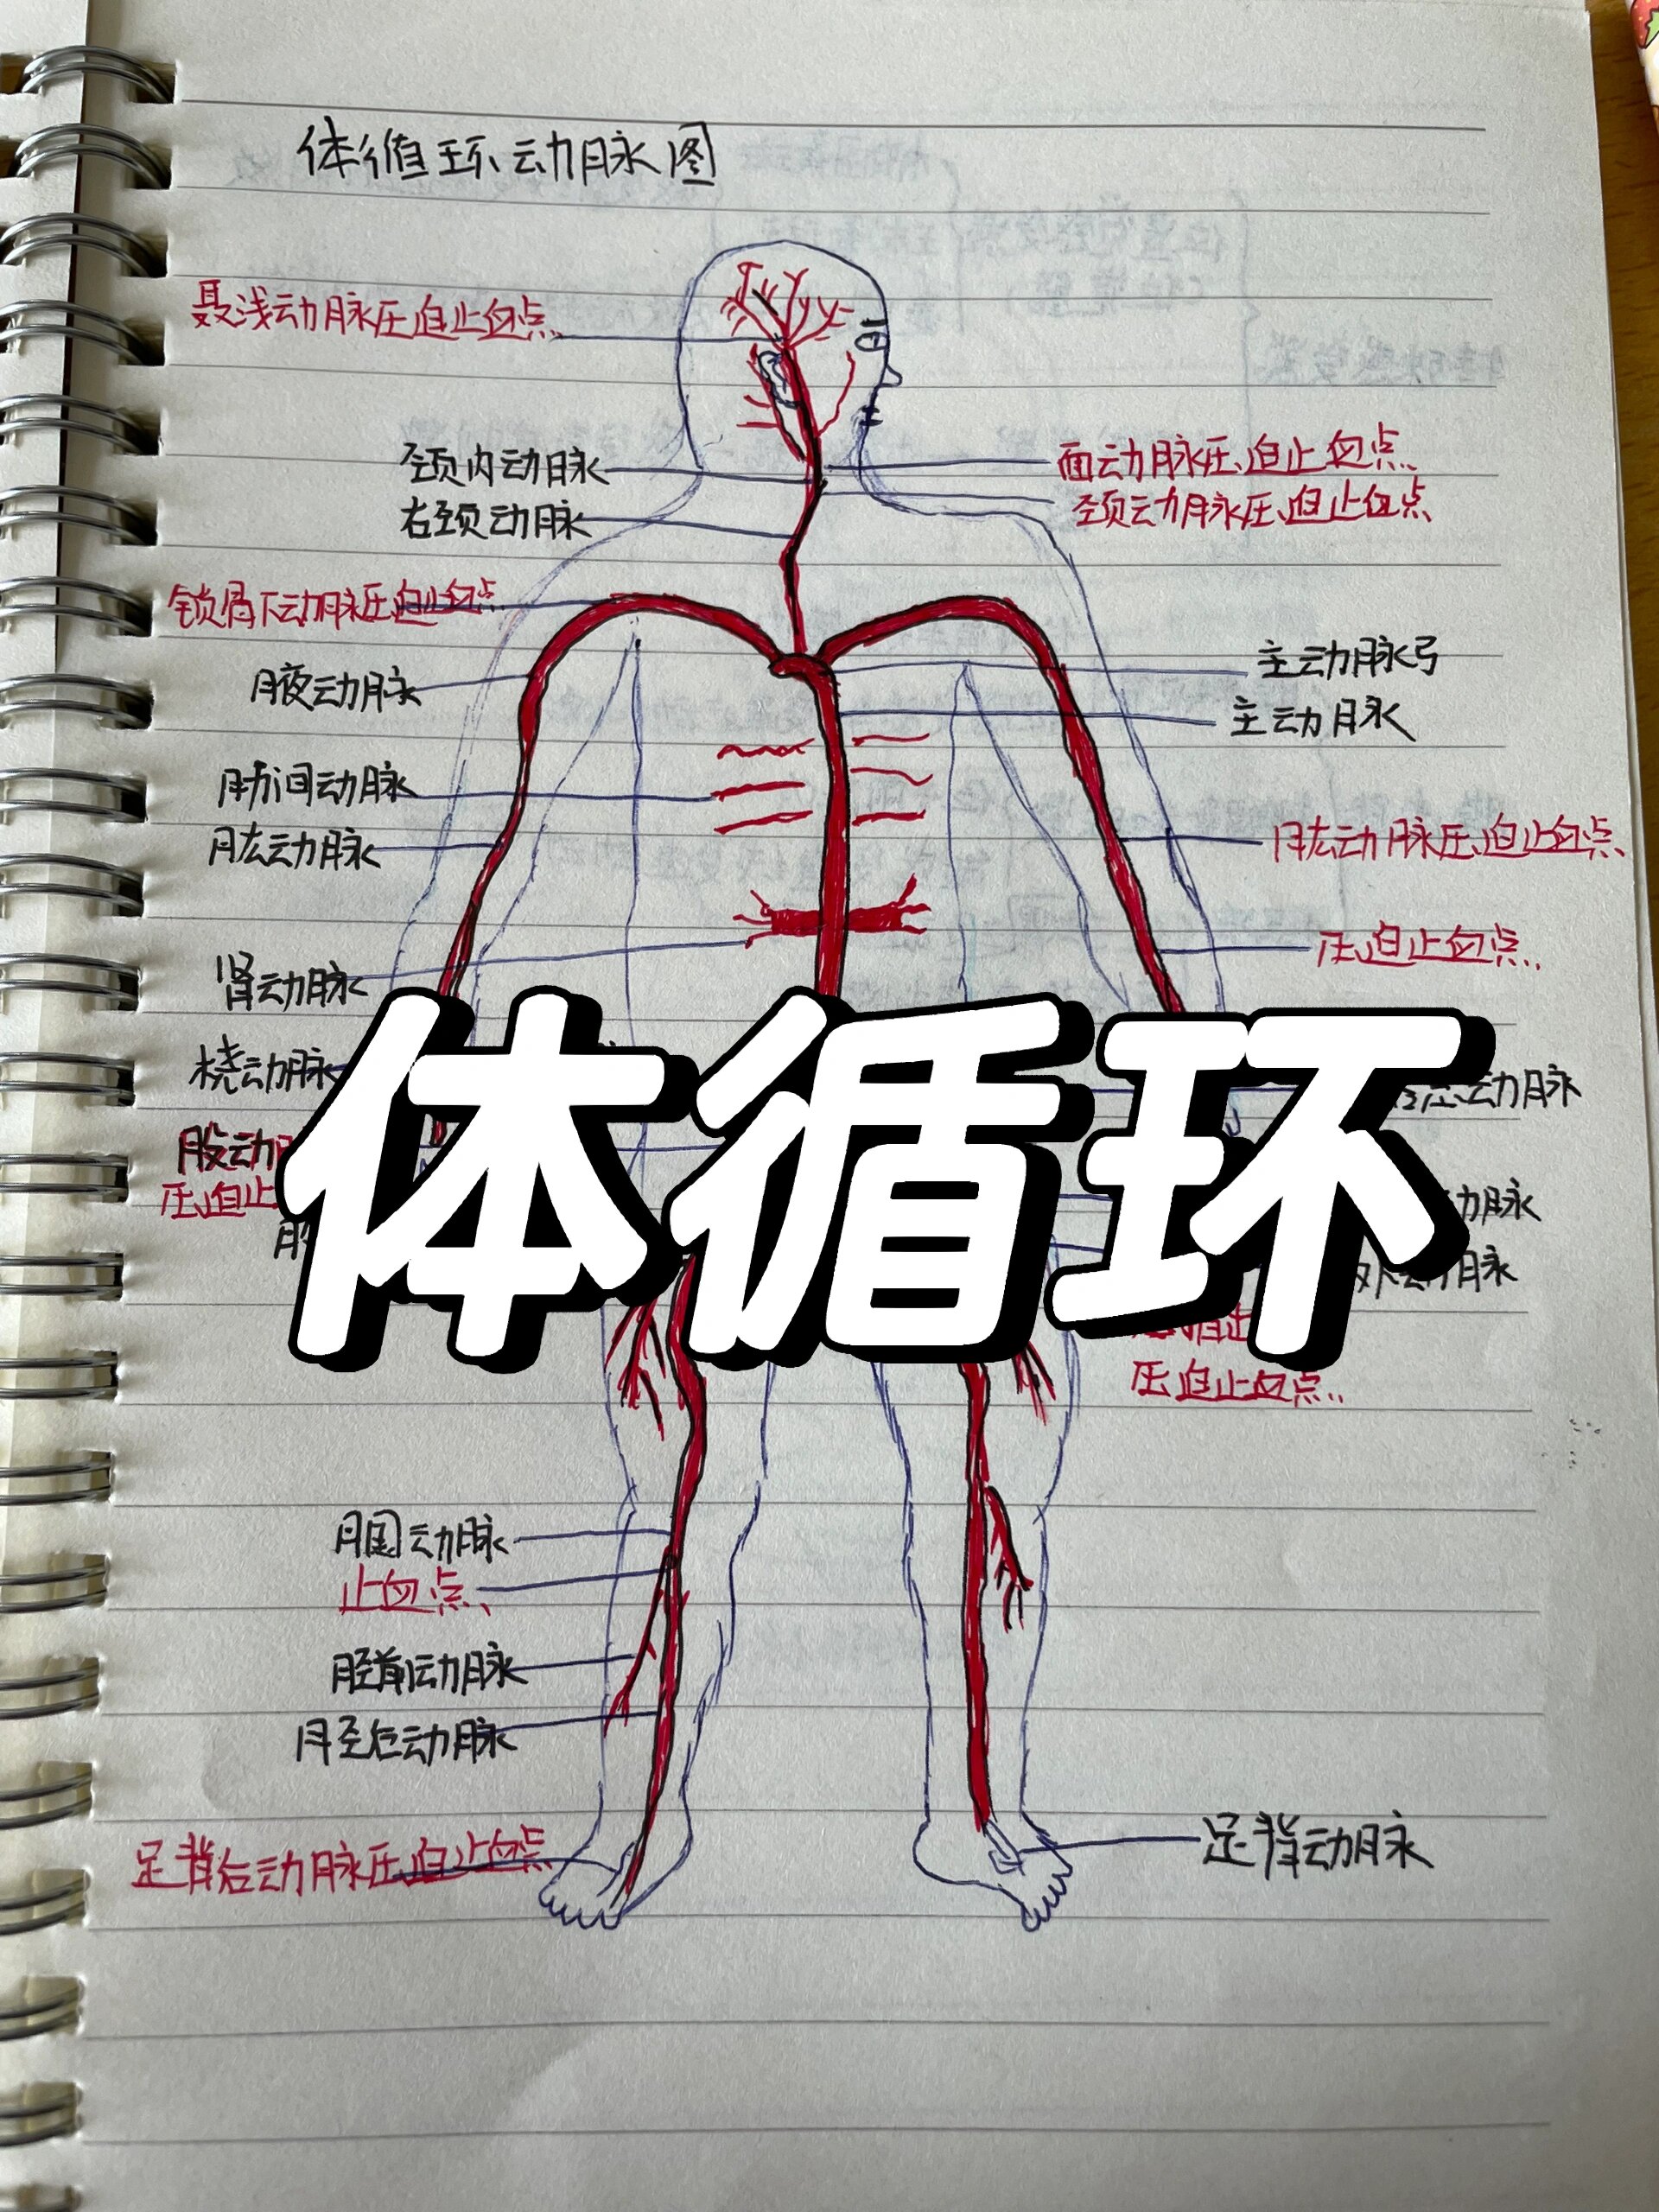 体循环动脉图
聂浅动脉压迫止血点
颈内动脉
面动脉压迫止血点
右颈动脉
颈动脉压迫止血点
锁骨下动脉压迫止血点
主动脉弓
腋动脉
主动脉
肋间动脉
肱动脉
肱动脉压迫止血点
压迫止血点
肾动脉
体循环
桡动脉
动脉
股动
压迫止
动脉
动脉
压迫止血点
腘动脉
止血点
胫前动脉
胫后动脉
足背后动脉压迫止血点
足背动脉